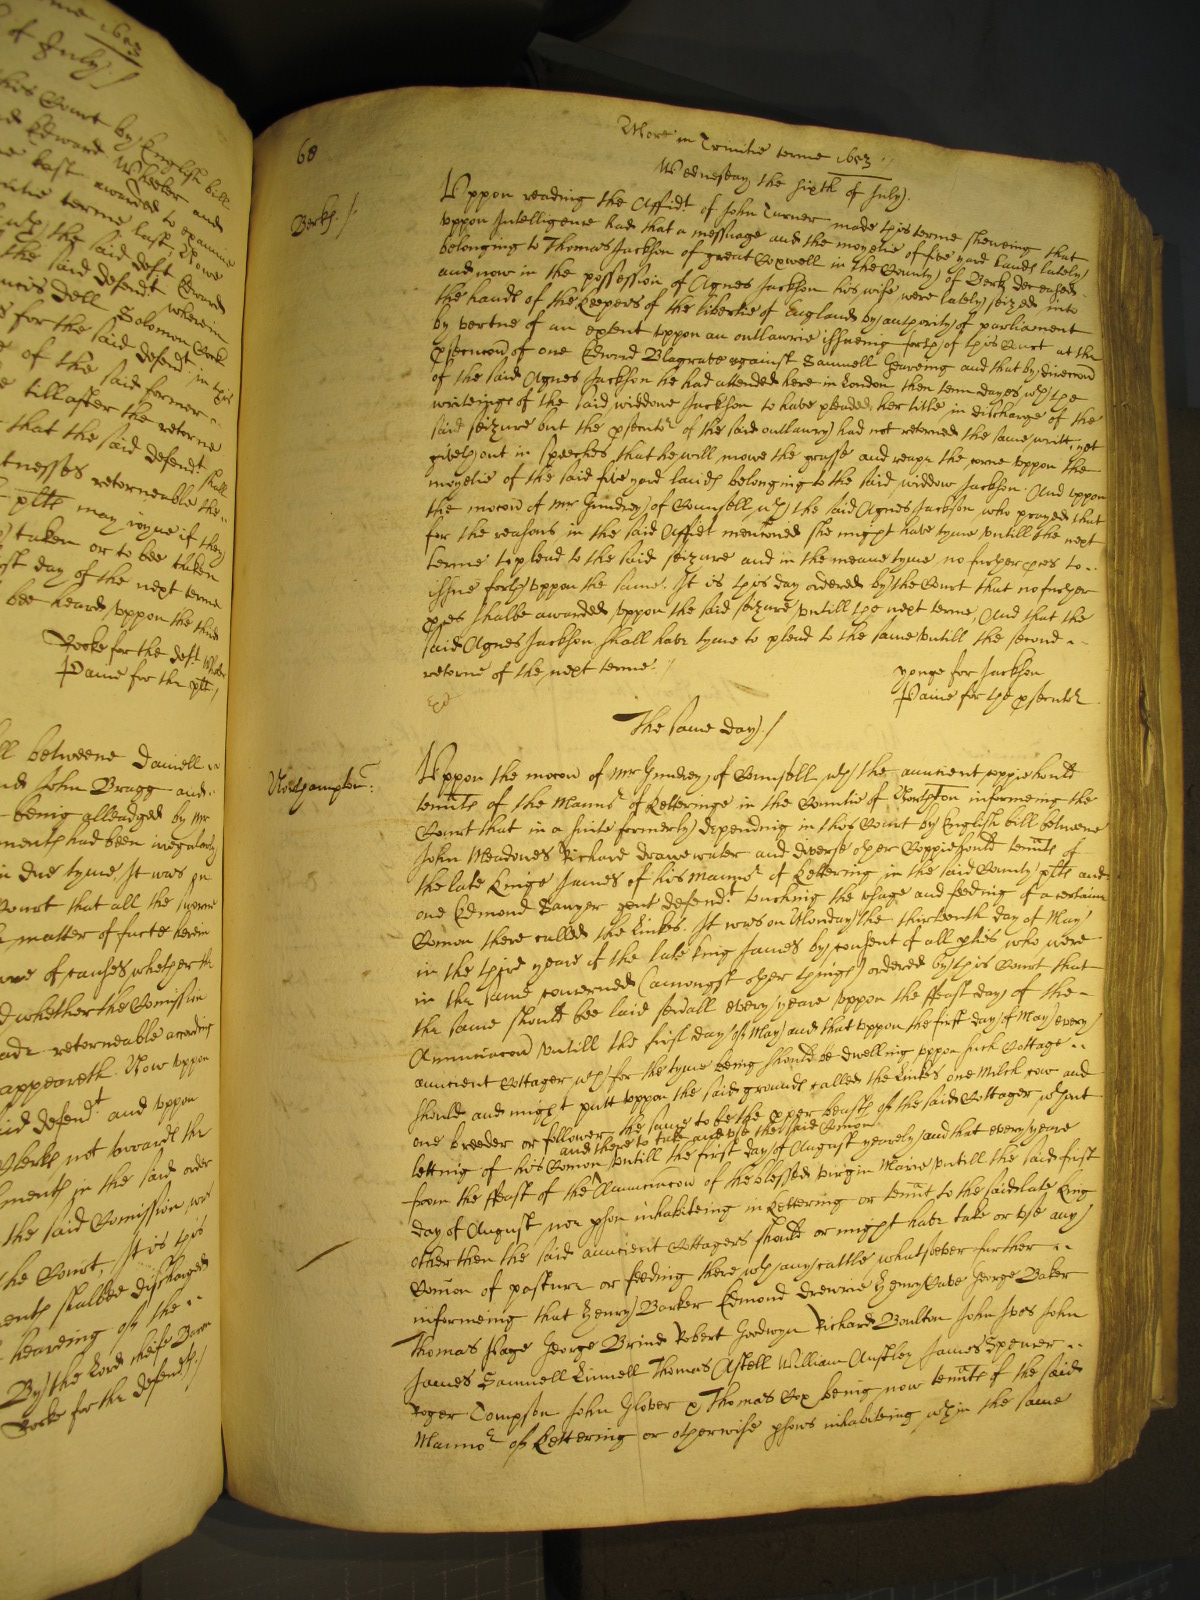 me 1653
of July /
his Court by English bill
Edward Wheeler and
last awarded to examine
terme last
the said deft Edward
the said defendt wherein
Dell Solomon
s for the said defendt in this
of the said former
till after the returne
that the said defendt shall
witnesses retorneable the
pltt may ioyne if they
taken or to bee taken
st day of the next terme
bee heard uppon the third
Rooke for the deft
Paine for the pltt
ll betweene Daniell
John Bragg and
being alleadged by Mr
had been irregularly
in due tyme It was on
Court that all the
matter of facte herein
of causes whether the
d whether the Comission
retorneable according
appeareth Now uppon
said defendt and uppon
Clerks not towards the
in the said order
the said Comission was
the Court. It is this
shalbee discharged
heareing of the
By the Lord cheife Baron
Rooke for the defendts /
68
More in Trinitie terme 1653 /
Wednesday the sixth of July.
Berks. /
Uppon reading the Affidt of John Turner made this terme sheweing that
uppon Intelligence had that a messuage and the moyetie of five yard Lands lately
belonging to Thomas Jackson of great Coxwell in the County of Berks deceased
and now in the possession of Agnes Jackson his wife were lately seized into
the hands of the Keepers of the libertie of England by authority of parliament
by vertue of an extent uppon an outlawrie issueing forth of this Court at the
psecucon of one Edward Blagrave against Samuell and that by direccon
of the said Agnes Jackson he had attended here in London then tenn dayes wth the
writeings of the said widdowe Jackson to have pleaded her title in discharge of the
said seizure but the psecutr of the said outlawry had not returned the same writt, yet
giveth out in speeches that he will mowe the grasse and reape the corne uppon the
moyetie of the said five yard lands belonging to the said widdow Jackson And uppon
the mocon of Mr Hendrey of Counsell wth the said Agnes Jackson who prayed that
for the reasons in the said Affidt mentioned she might have tyme untill the next
terme to plead to the said seizure and in the meane tyme no further pces to
issue forth uppon the same. It is this day ordered by the Court that no further
pces shalbe awarded uppon the said seizure untill the next terme, And that the
said Agnes Jackson shall have tyme to plead to the same untill the second
returne of the next terme. /
yonge for Jackson
Paine for the psecutr
The same day /
Northampton:
Uppon the mocon of Mr Hendrey of Counsell wth the auncient coppiehould
tennts of the Mannor of Ketteringe in the Countie of Northton informeing the
Court that in a suite formerly depending in this Court by English bill betweene
John Meadowes Richard Drawewater and diverse other Coppiehould tennts of
the late Kinge James of his Mannor of Kettering in the said County pltts and
one Edmond Sawyer gent defendt touching the usage and feeding of a certaine
Comon there called the Links. It was on Monday the thirteenth day of May
in the third yeare of the late King James by consent of all pties who were
in the same concerned (amongst other things) ordered by this Court that
the same should bee laid severall every yeare uppon the ffeast day of the
Annunciacon untill the first day of May and that uppon the first day of May every
auncient Cottager wch for the tyme being should be dwelling uppon such Cottage
should and might putt uppon the said grounds called the Links one Milch cow and
one breeder or follower the same to be the pper beasts of the said Cottager wthout
and there to take and use the said Comon
letting of his Comon untill the first day of August yearely and that every yeare
from the ffeast of the Annunciacon of the blessed virgin Marie untill the said first
day of August noe pson inhabiteing in Kettering or tennt to the said late King
other then the said auncient Cottagers should or might have take or use any
Comon of pasture or feeding there wth any cattle whatsoever further
informeing that Henry Barker Edmond Drewrie Henry Cave George Baker
Thomas Page George Brind Robert Goodwyn Richard Boulton John Ives John
James Samuell Linnell Thomas Astell William Anstley James Spencer
Roger Tompson John Glover & Thomas Cox being now tennts of the said
Mannor of Kettering or otherwise psons inhabiting wthin the same